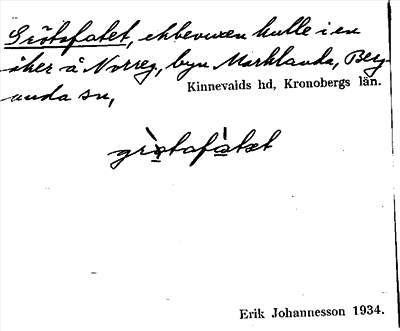 Grötafatet, ekbevuxen kulle i en
åker å Norreg, byn Marklanda, Berg-
unda sn,
Kinnevalds hd, Kronobergs län.
gròtafàtet
Erik Johannesson 1934.